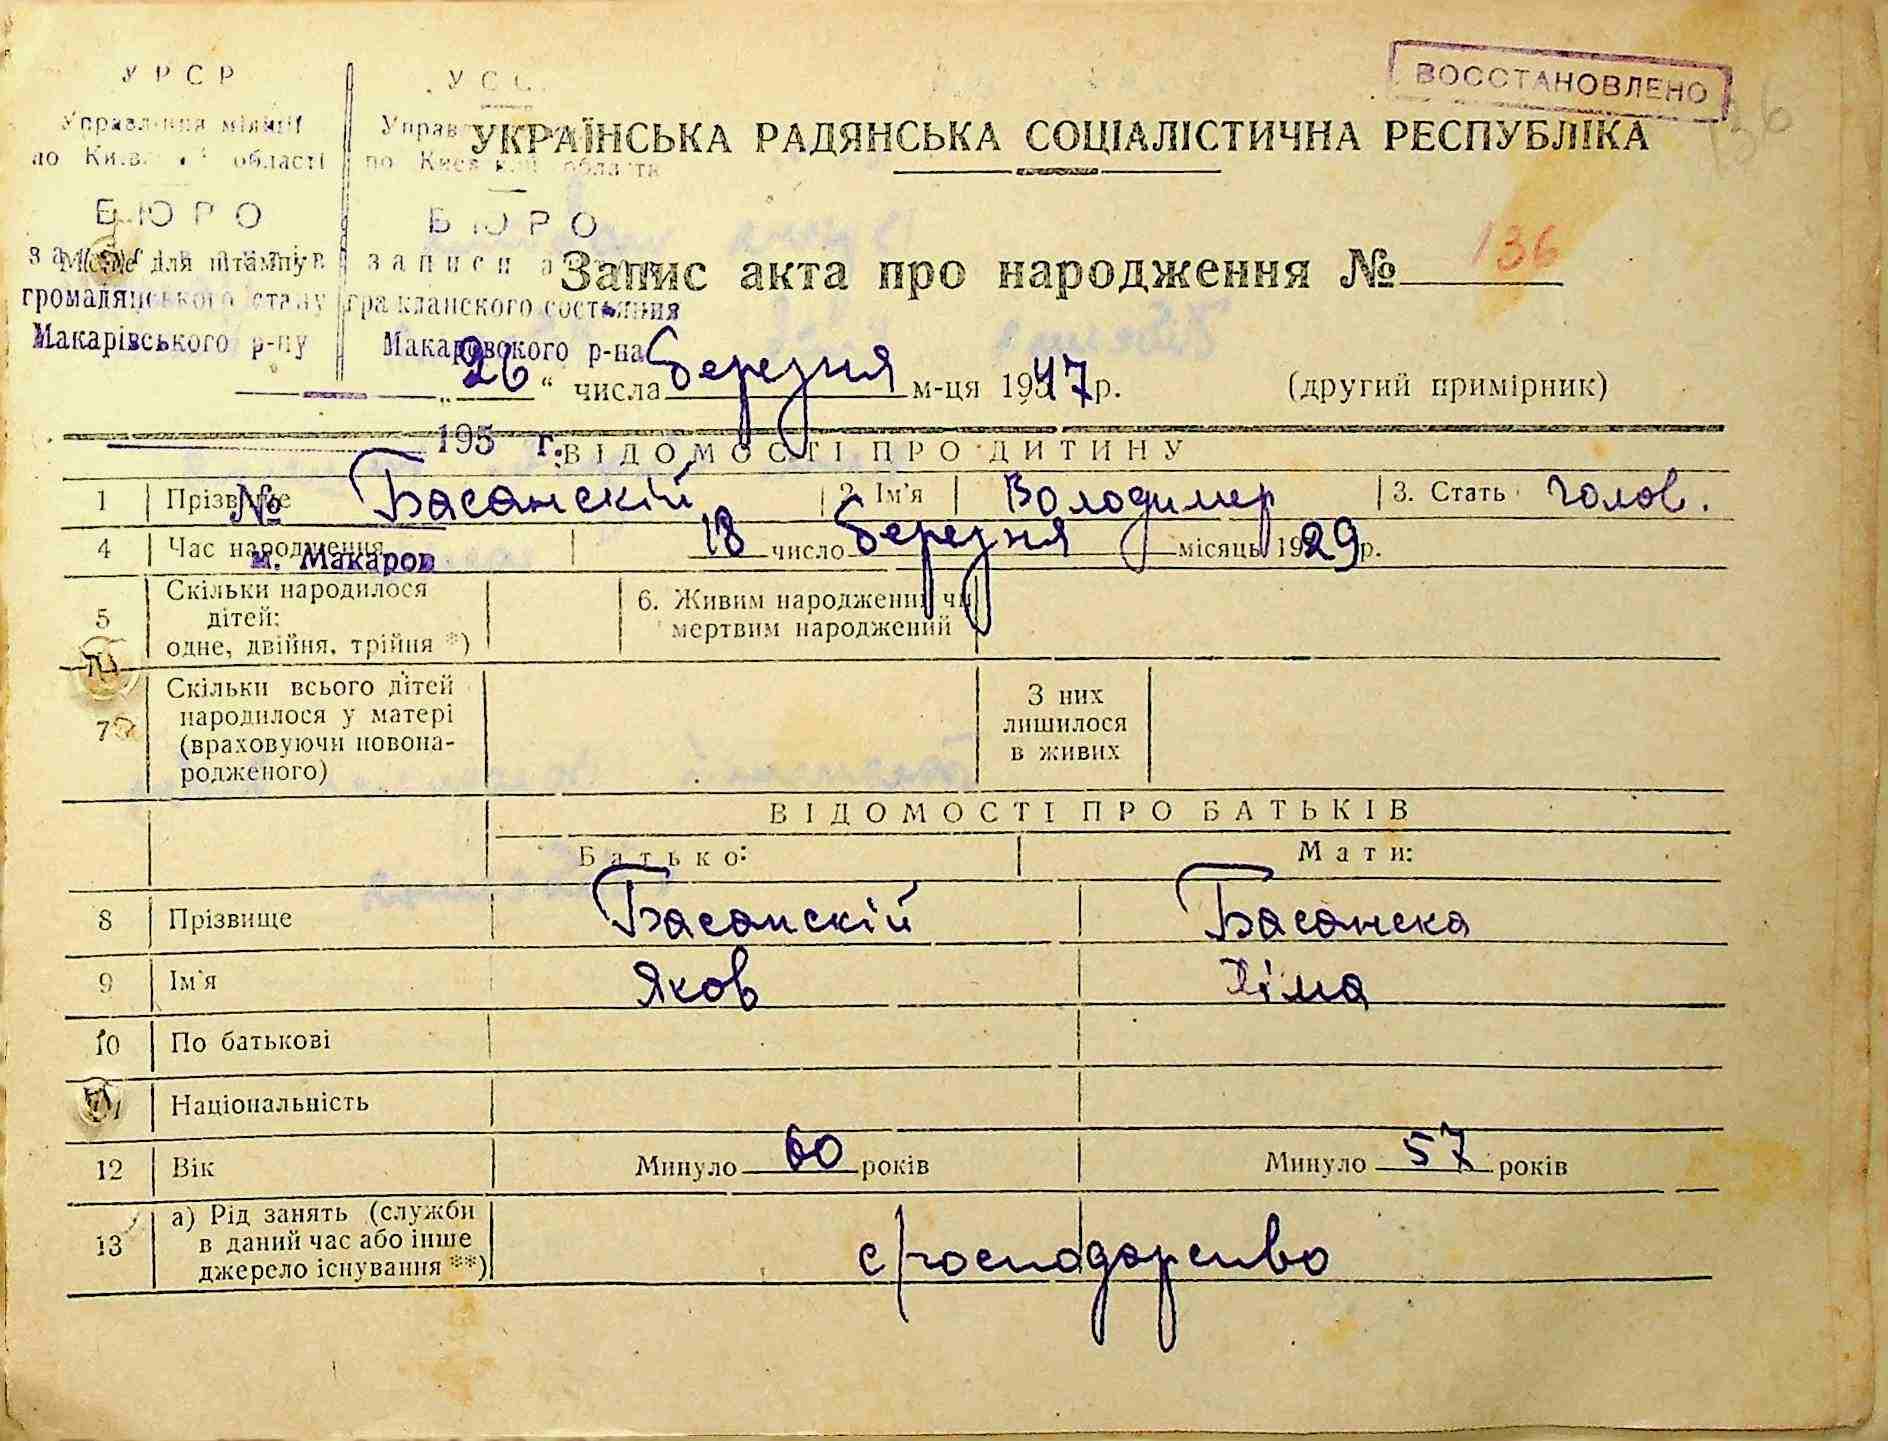 ВОССТАНОВЛЕНО
136
У Р С Р
Управління міліції
по Київській області
БЮРО
Місце для штампу
громадянського стану
Макарівського р-ну
У С С
по Киевской области
БЮРО
записи а
гражданского состояния
Макаровского р-на
195 г.
№
м. Макаров
УКРАЇНСЬКА РАДЯНСЬКА СОЦІАЛІСТИЧНА РЕСПУБЛІКА
Запис акта про народження № 136
„26“ числа березня м-ця 1947 р. (другий примірник)
ВІДОМОСТІ ПРО ДИТИНУ
1 Прізвище Басанскій 2. Ім'я Володимер 3. Стать чолов.
4 Час народження 18 число березня місяць 1929 р.
5 Скільки народилося дітей: одне, двійня, трійня *) 6. Живим народжений чи мертвим народжений
7 Скільки всього дітей народилося у матері (враховуючи новонародженого) З них лишилося в живих
ВІДОМОСТІ ПРО БАТЬКІВ
Батько: Мати:
8 Прізвище Басанскій Басанска
9 Ім'я Яков Хіма
10 По батькові
11 Національність
12 Вік Минуло 60 років Минуло 57 років
13 а) Рід занять (служби в даний час або інше джерело існування **) с/господарство